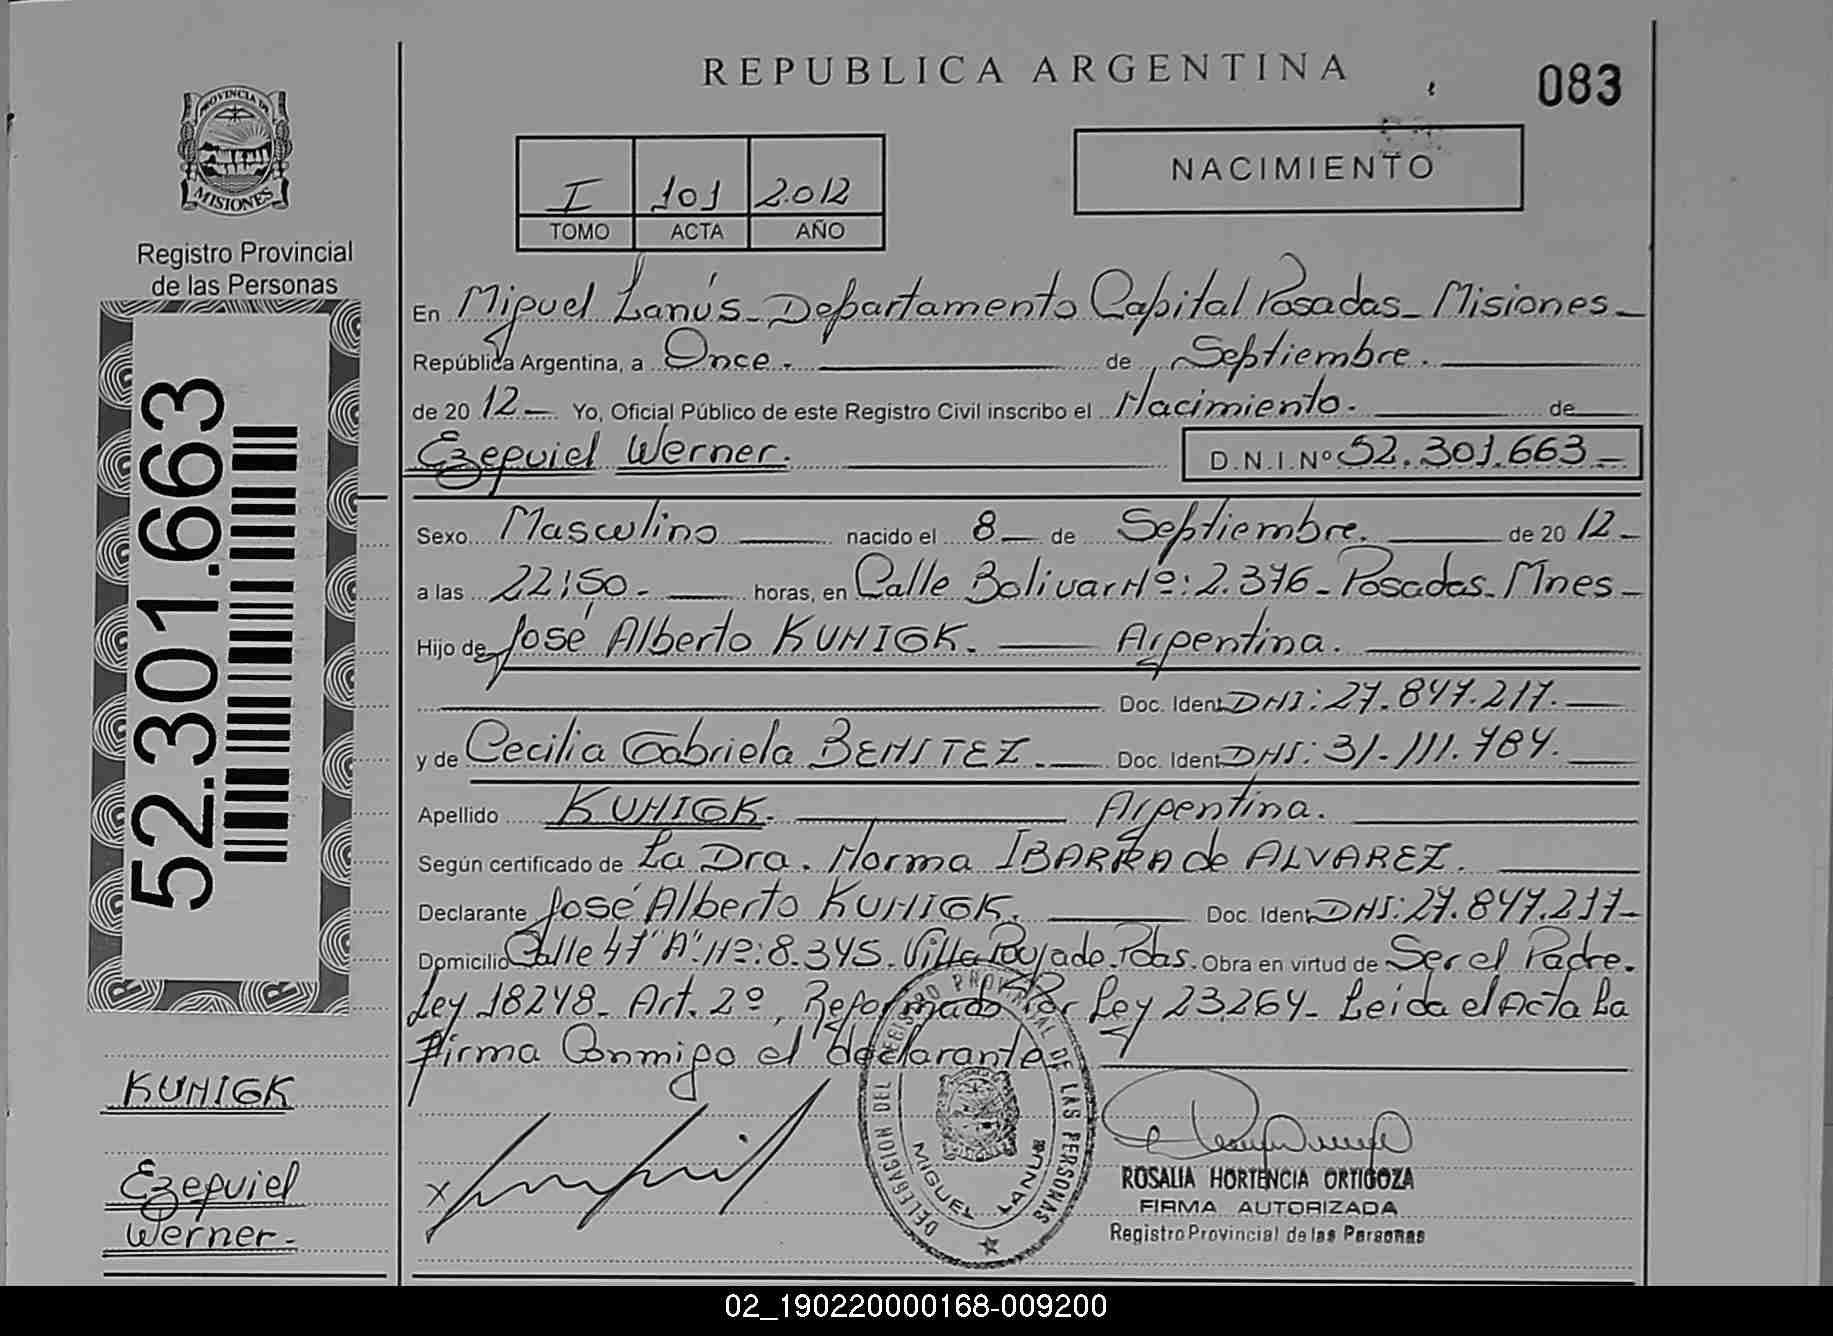 REPUBLICA ARGENTINA
083
PROVINCIA DE
MISIONES
Registro Provincial
de las Personas
I 101 2.012
TOMO ACTA AÑO
NACIMIENTO
52.301.663
En Miguel Lanús - Departamento Capital Posadas - Misiones -
República Argentina, a Once. de Septiembre.
de 20 12 - Yo, Oficial Público de este Registro Civil inscribo el Nacimiento. de
Ezequiel Werner. D.N.I. Nº 52.301.663 -
Sexo Masculino nacido el 8 de Septiembre. de 20 12 -
a las 22:50 - horas, en Calle Bolivar Nº: 2.376 - Posadas - Mnes -
Hijo de José Alberto KUNIGK. Argentina.
Doc. Ident DNI: 27.847.217.
y de Cecilia Gabriela BENITEZ. Doc. Ident DNI: 31.111.784.
Apellido KUNIGK. Argentina.
Según certificado de La Dra. Norma IBARRA de ALVAREZ.
Declarante José Alberto KUNIGK. Doc. Ident DNI: 27.847.217 -
Domicilio Calle 47 "A" Nº: 8.345. Villa Poujade. Pdas. Obra en virtud de Ser el Padre.
Ley 18248 - Art. 2º, Reformado Por Ley 23264 - Leida el Acta La
Firma Conmigo el declarante
KUNIGK
Ezequiel
Werner -
x
DELEGACION DEL REGISTRO PROVINCIAL DE LAS PERSONAS
MIGUEL LANUS
ROSALIA HORTENCIA ORTIGOZA
FIRMA AUTORIZADA
Registro Provincial de las Personas
02_190220000168-009200